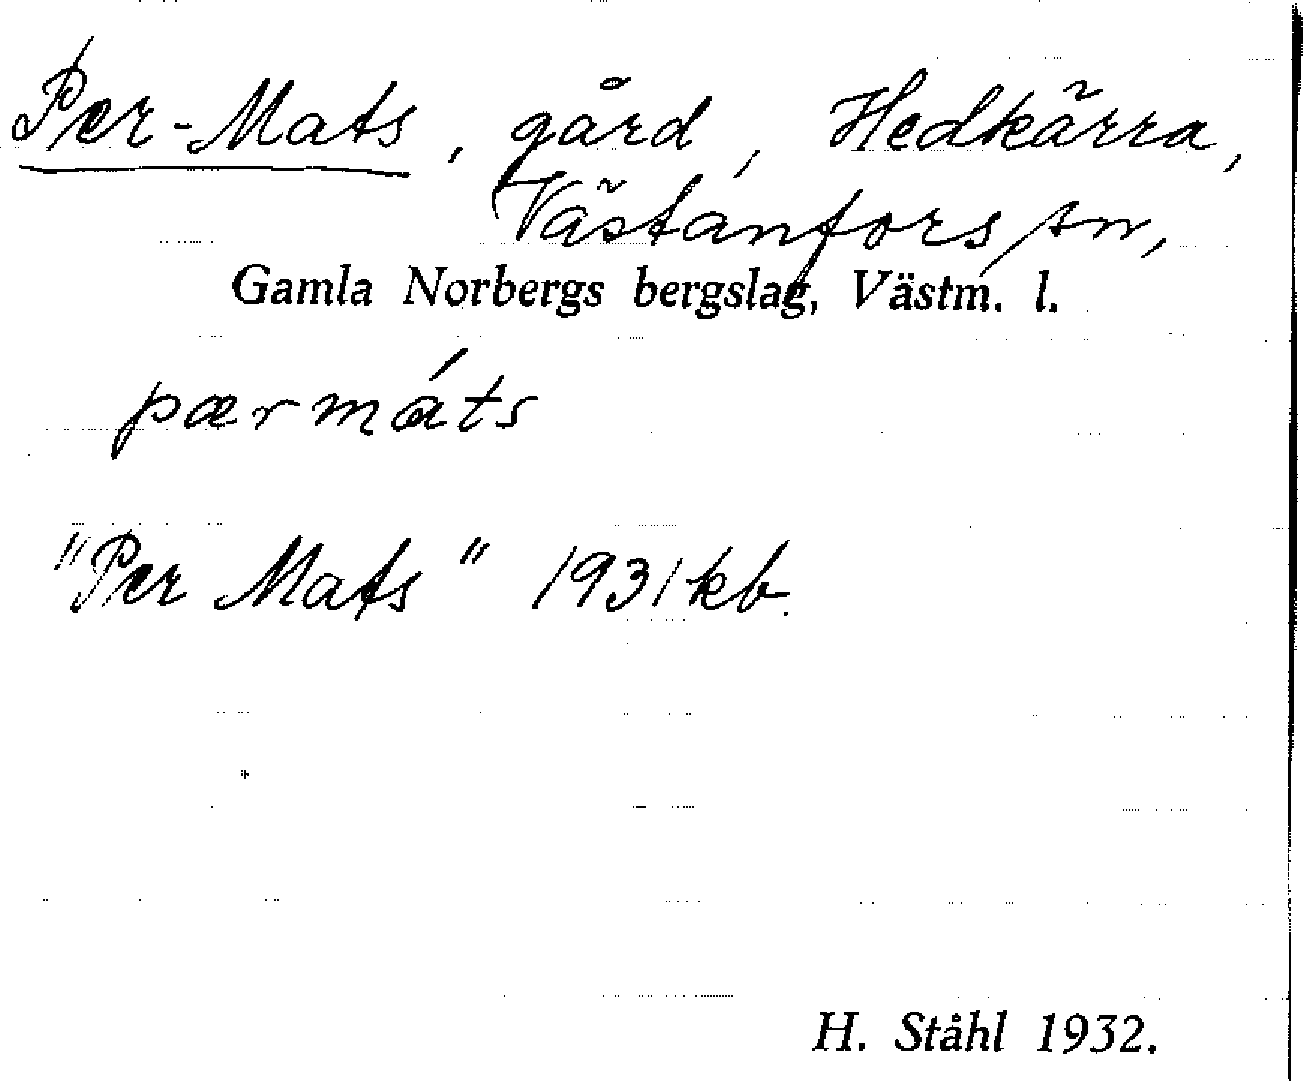 Per-Mats, gård, Hedkärra,
Västanfors sn,
Gamla Norbergs bergslag, Västm. l.
pærmáts
"Per Mats" 1931 kb.
H. Ståhl 1932.